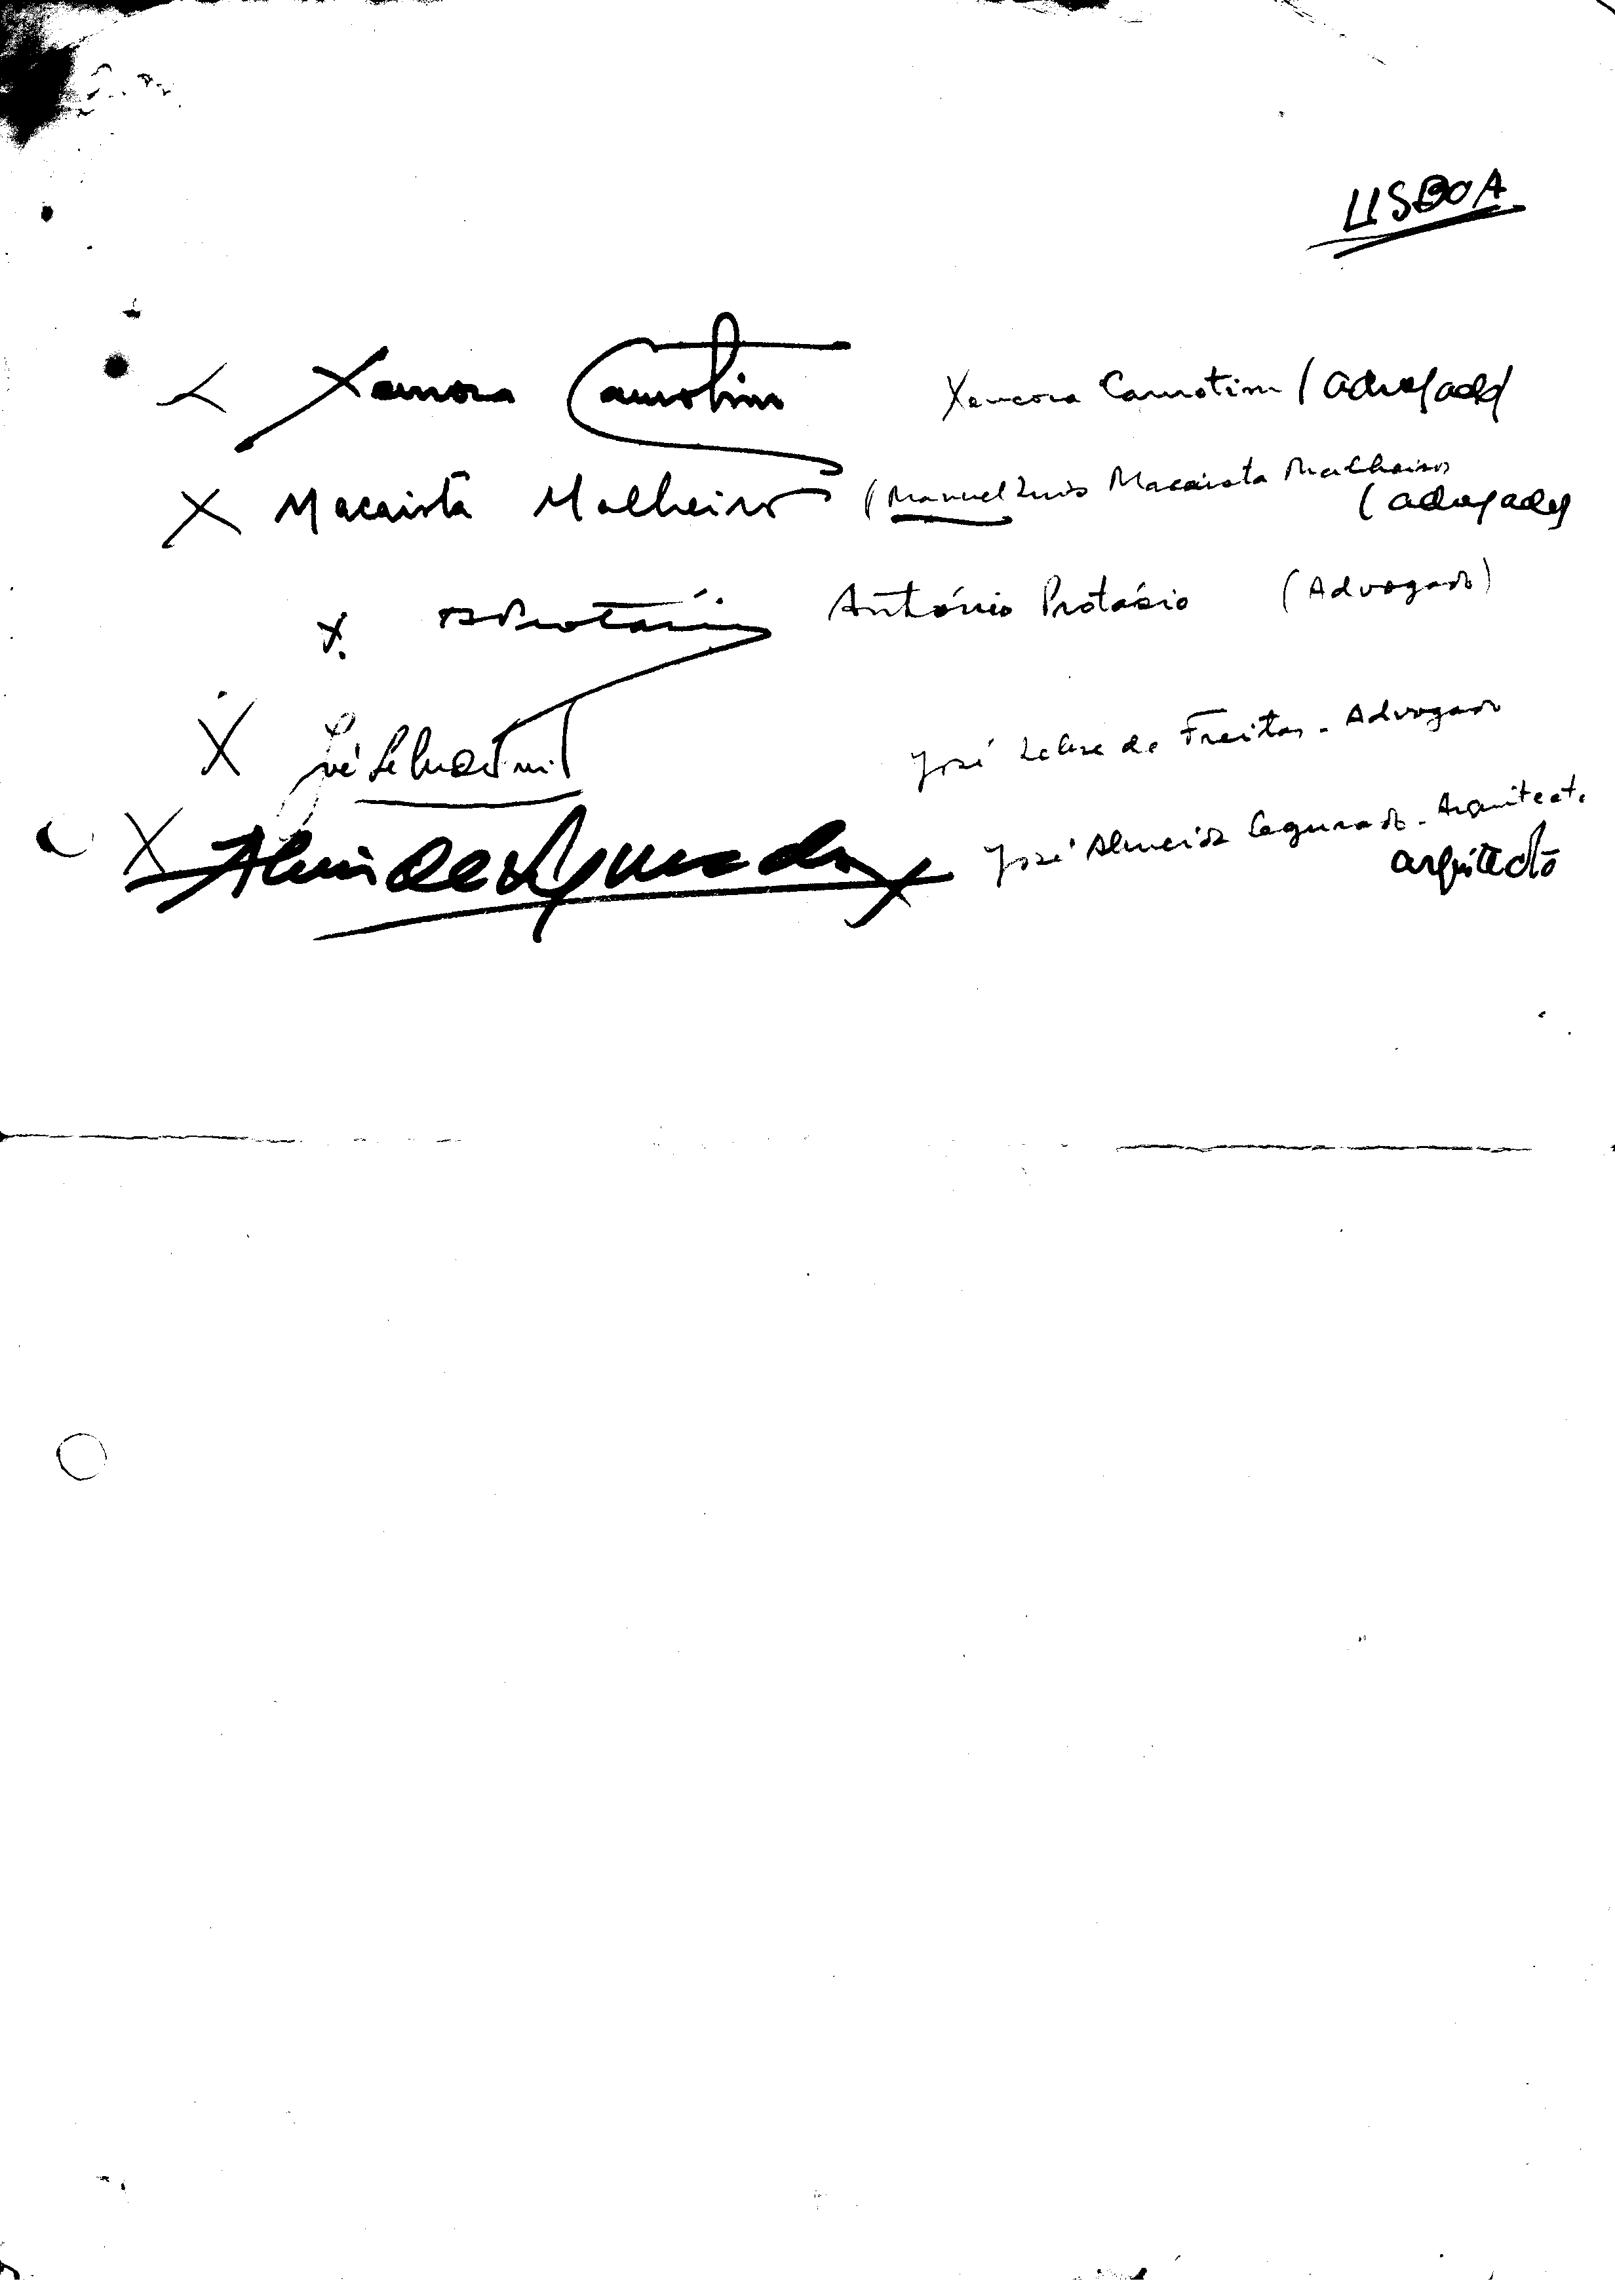 LISBOA
X Xencora Camotim Xencora Camotim (advogado)
X Macaísta Malheiros (Manuel Luís Macaísta Malheiros
(advogado)
X. A Protásio António Protásio (Advogado)
X José Lebre de Freitas - Advogado
X Almeida Segurado José Almeida Segurado - Arquitecto
arquitecto